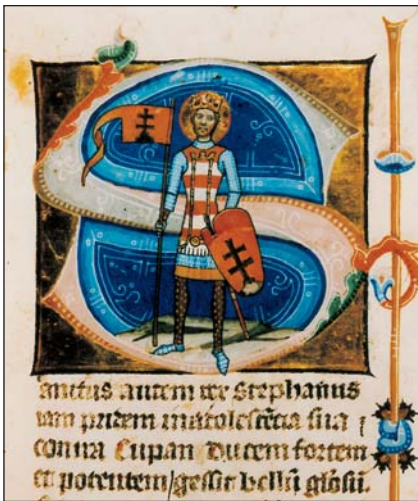 Sanctus autem rex Stephanus
iam pridem in adolescētia sua
contra Cupan ducem fortem
et potentem/gessit bellū gl'osū